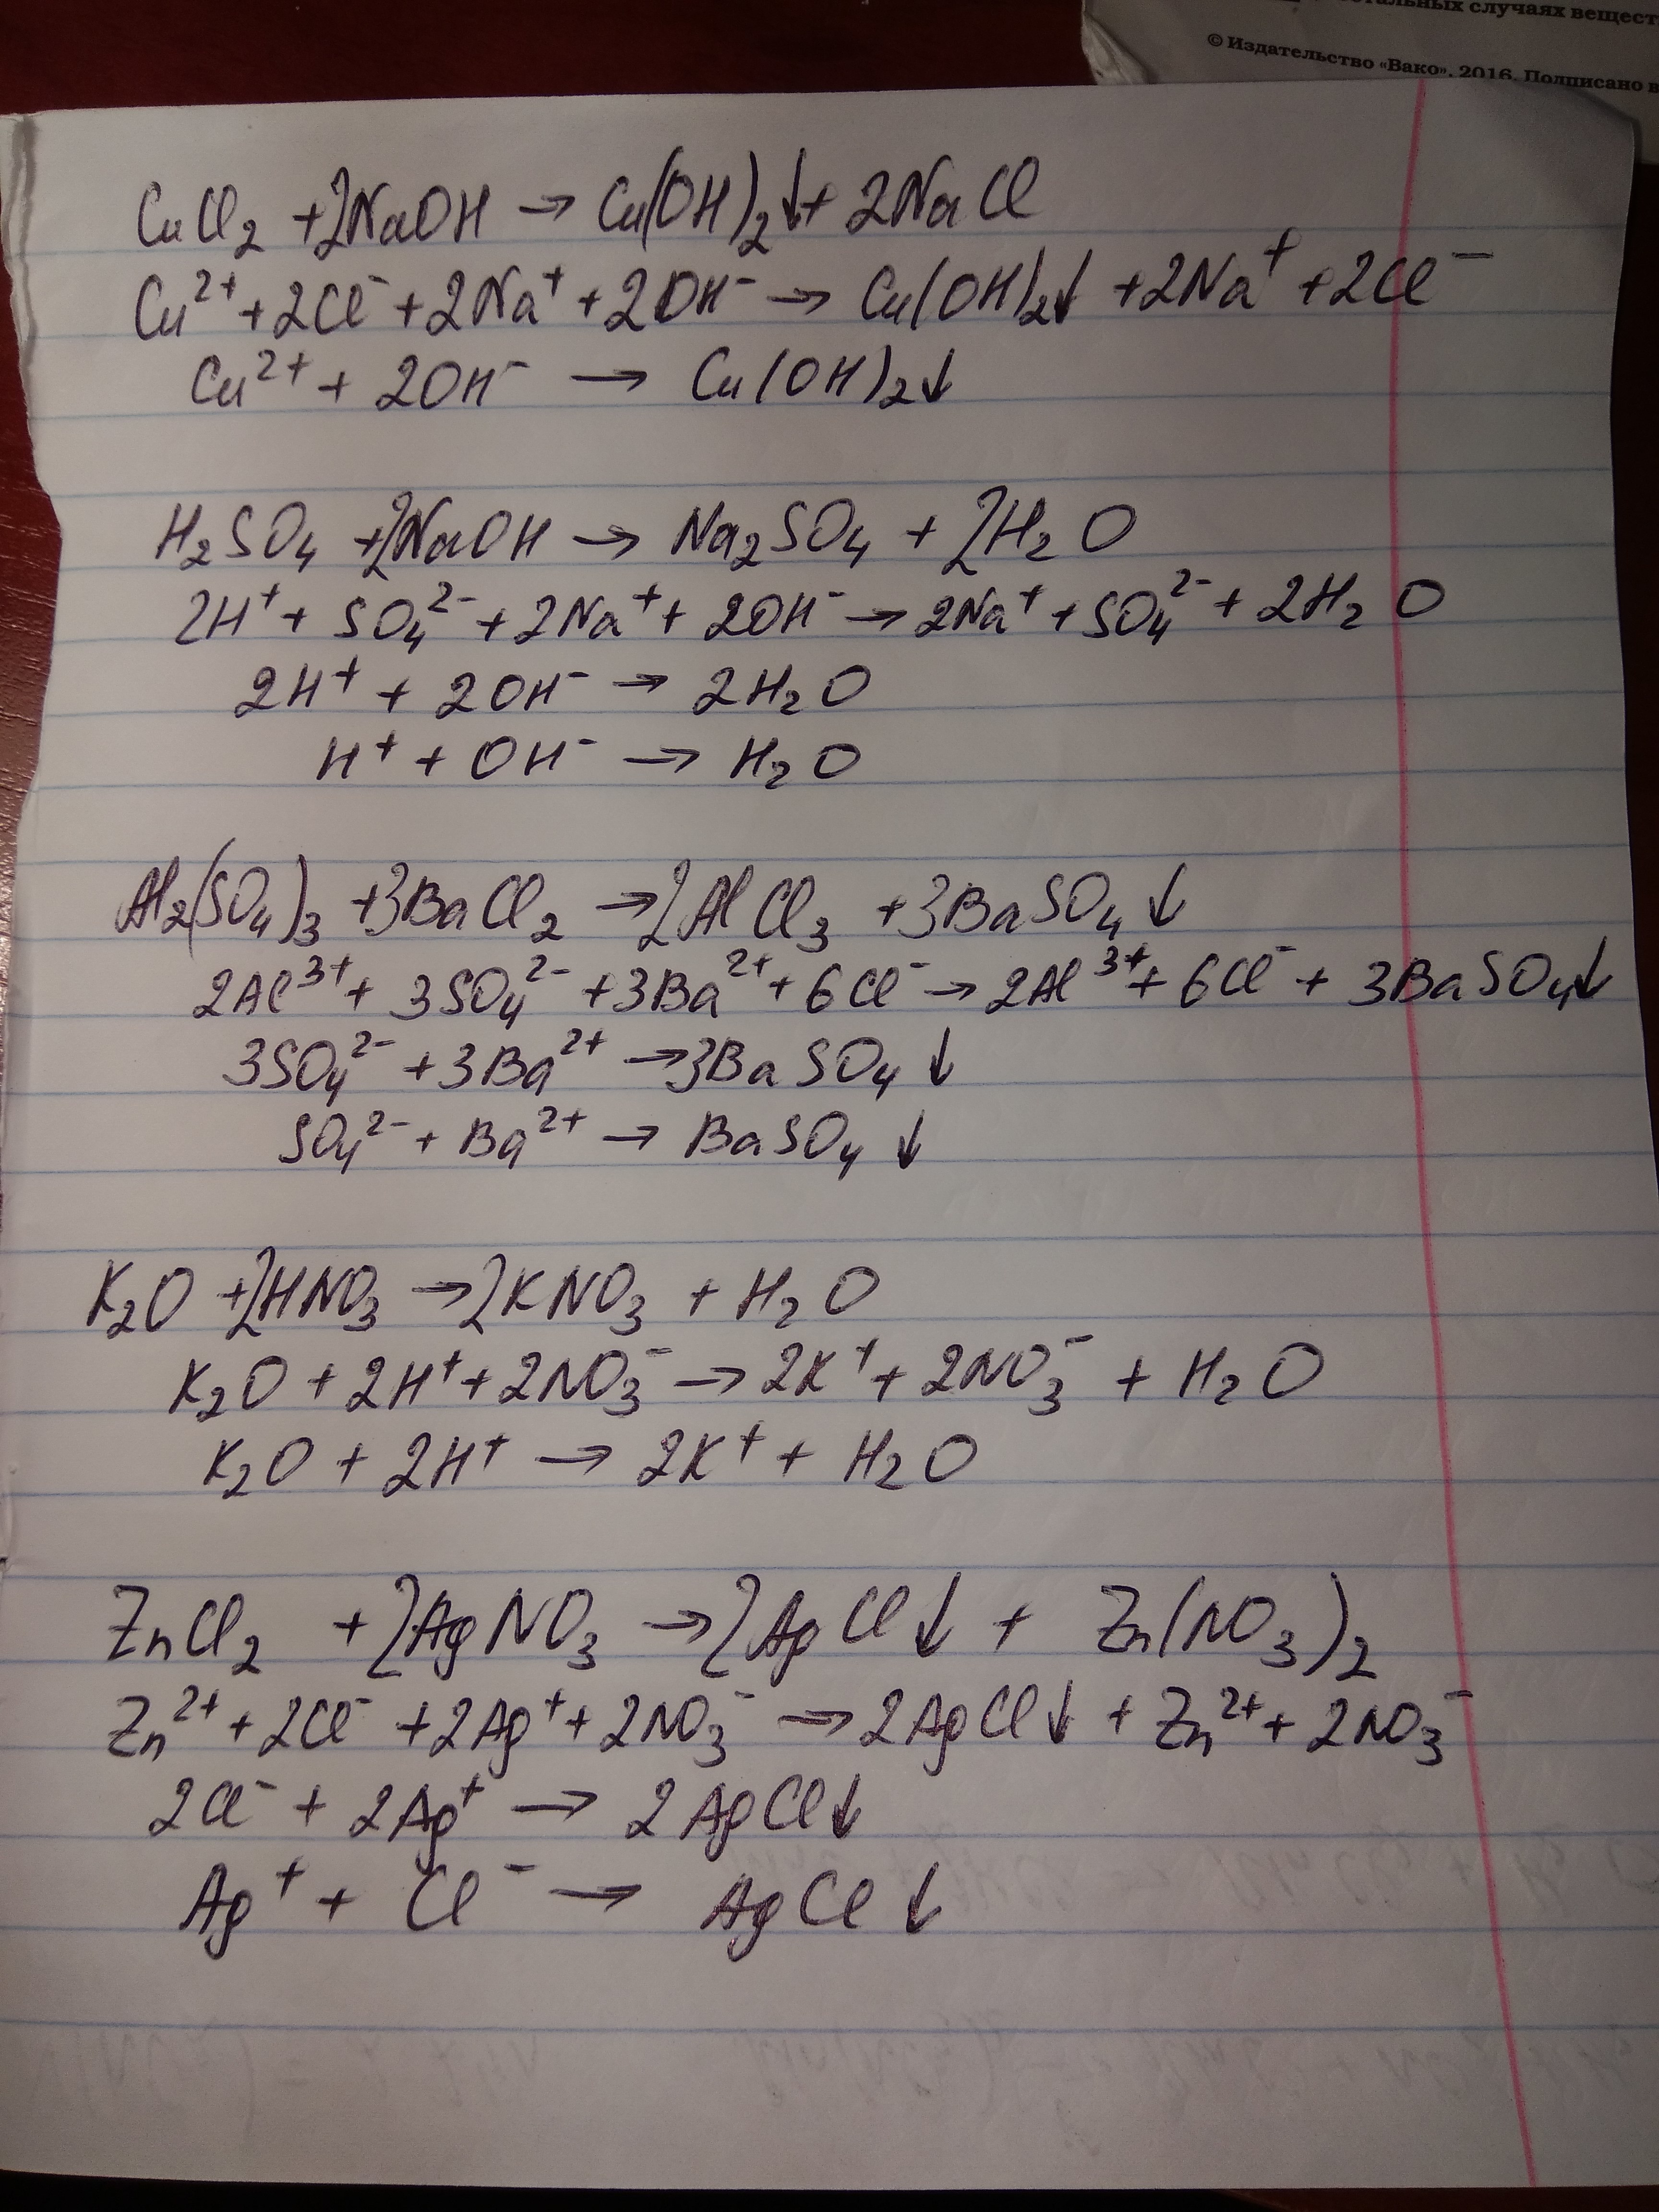 стальных случаях вещест
© Издательство «Вако», 2016. Подписано в
CuCl₂ + 2NaOH → Cu(OH)₂↓ + 2NaCl
Cu²⁺ + 2Cl⁻ + 2Na⁺ + 2OH⁻ → Cu(OH)₂↓ + 2Na⁺ + 2Cl⁻
Cu²⁺ + 2OH⁻ → Cu(OH)₂↓
H₂SO₄ + 2NaOH → Na₂SO₄ + 2H₂O
2H⁺ + SO₄²⁻ + 2Na⁺ + 2OH⁻ → 2Na⁺ + SO₄²⁻ + 2H₂O
2H⁺ + 2OH⁻ → 2H₂O
H⁺ + OH⁻ → H₂O
Al₂(SO₄)₃ + 3BaCl₂ → 2AlCl₃ + 3BaSO₄↓
2Al³⁺ + 3SO₄²⁻ + 3Ba²⁺ + 6Cl⁻ → 2Al³⁺ + 6Cl⁻ + 3BaSO₄↓
3SO₄²⁻ + 3Ba²⁺ → 3BaSO₄↓
SO₄²⁻ + Ba²⁺ → BaSO₄↓
K₂O + 2HNO₃ → 2KNO₃ + H₂O
K₂O + 2H⁺ + 2NO₃⁻ → 2K⁺ + 2NO₃⁻ + H₂O
K₂O + 2H⁺ → 2K⁺ + H₂O
ZnCl₂ + 2AgNO₃ → 2AgCl↓ + Zn(NO₃)₂
Zn²⁺ + 2Cl⁻ + 2Ag⁺ + 2NO₃⁻ → 2AgCl↓ + Zn²⁺ + 2NO₃⁻
2Cl⁻ + 2Ag⁺ → 2AgCl↓
Ag⁺ + Cl⁻ → AgCl↓